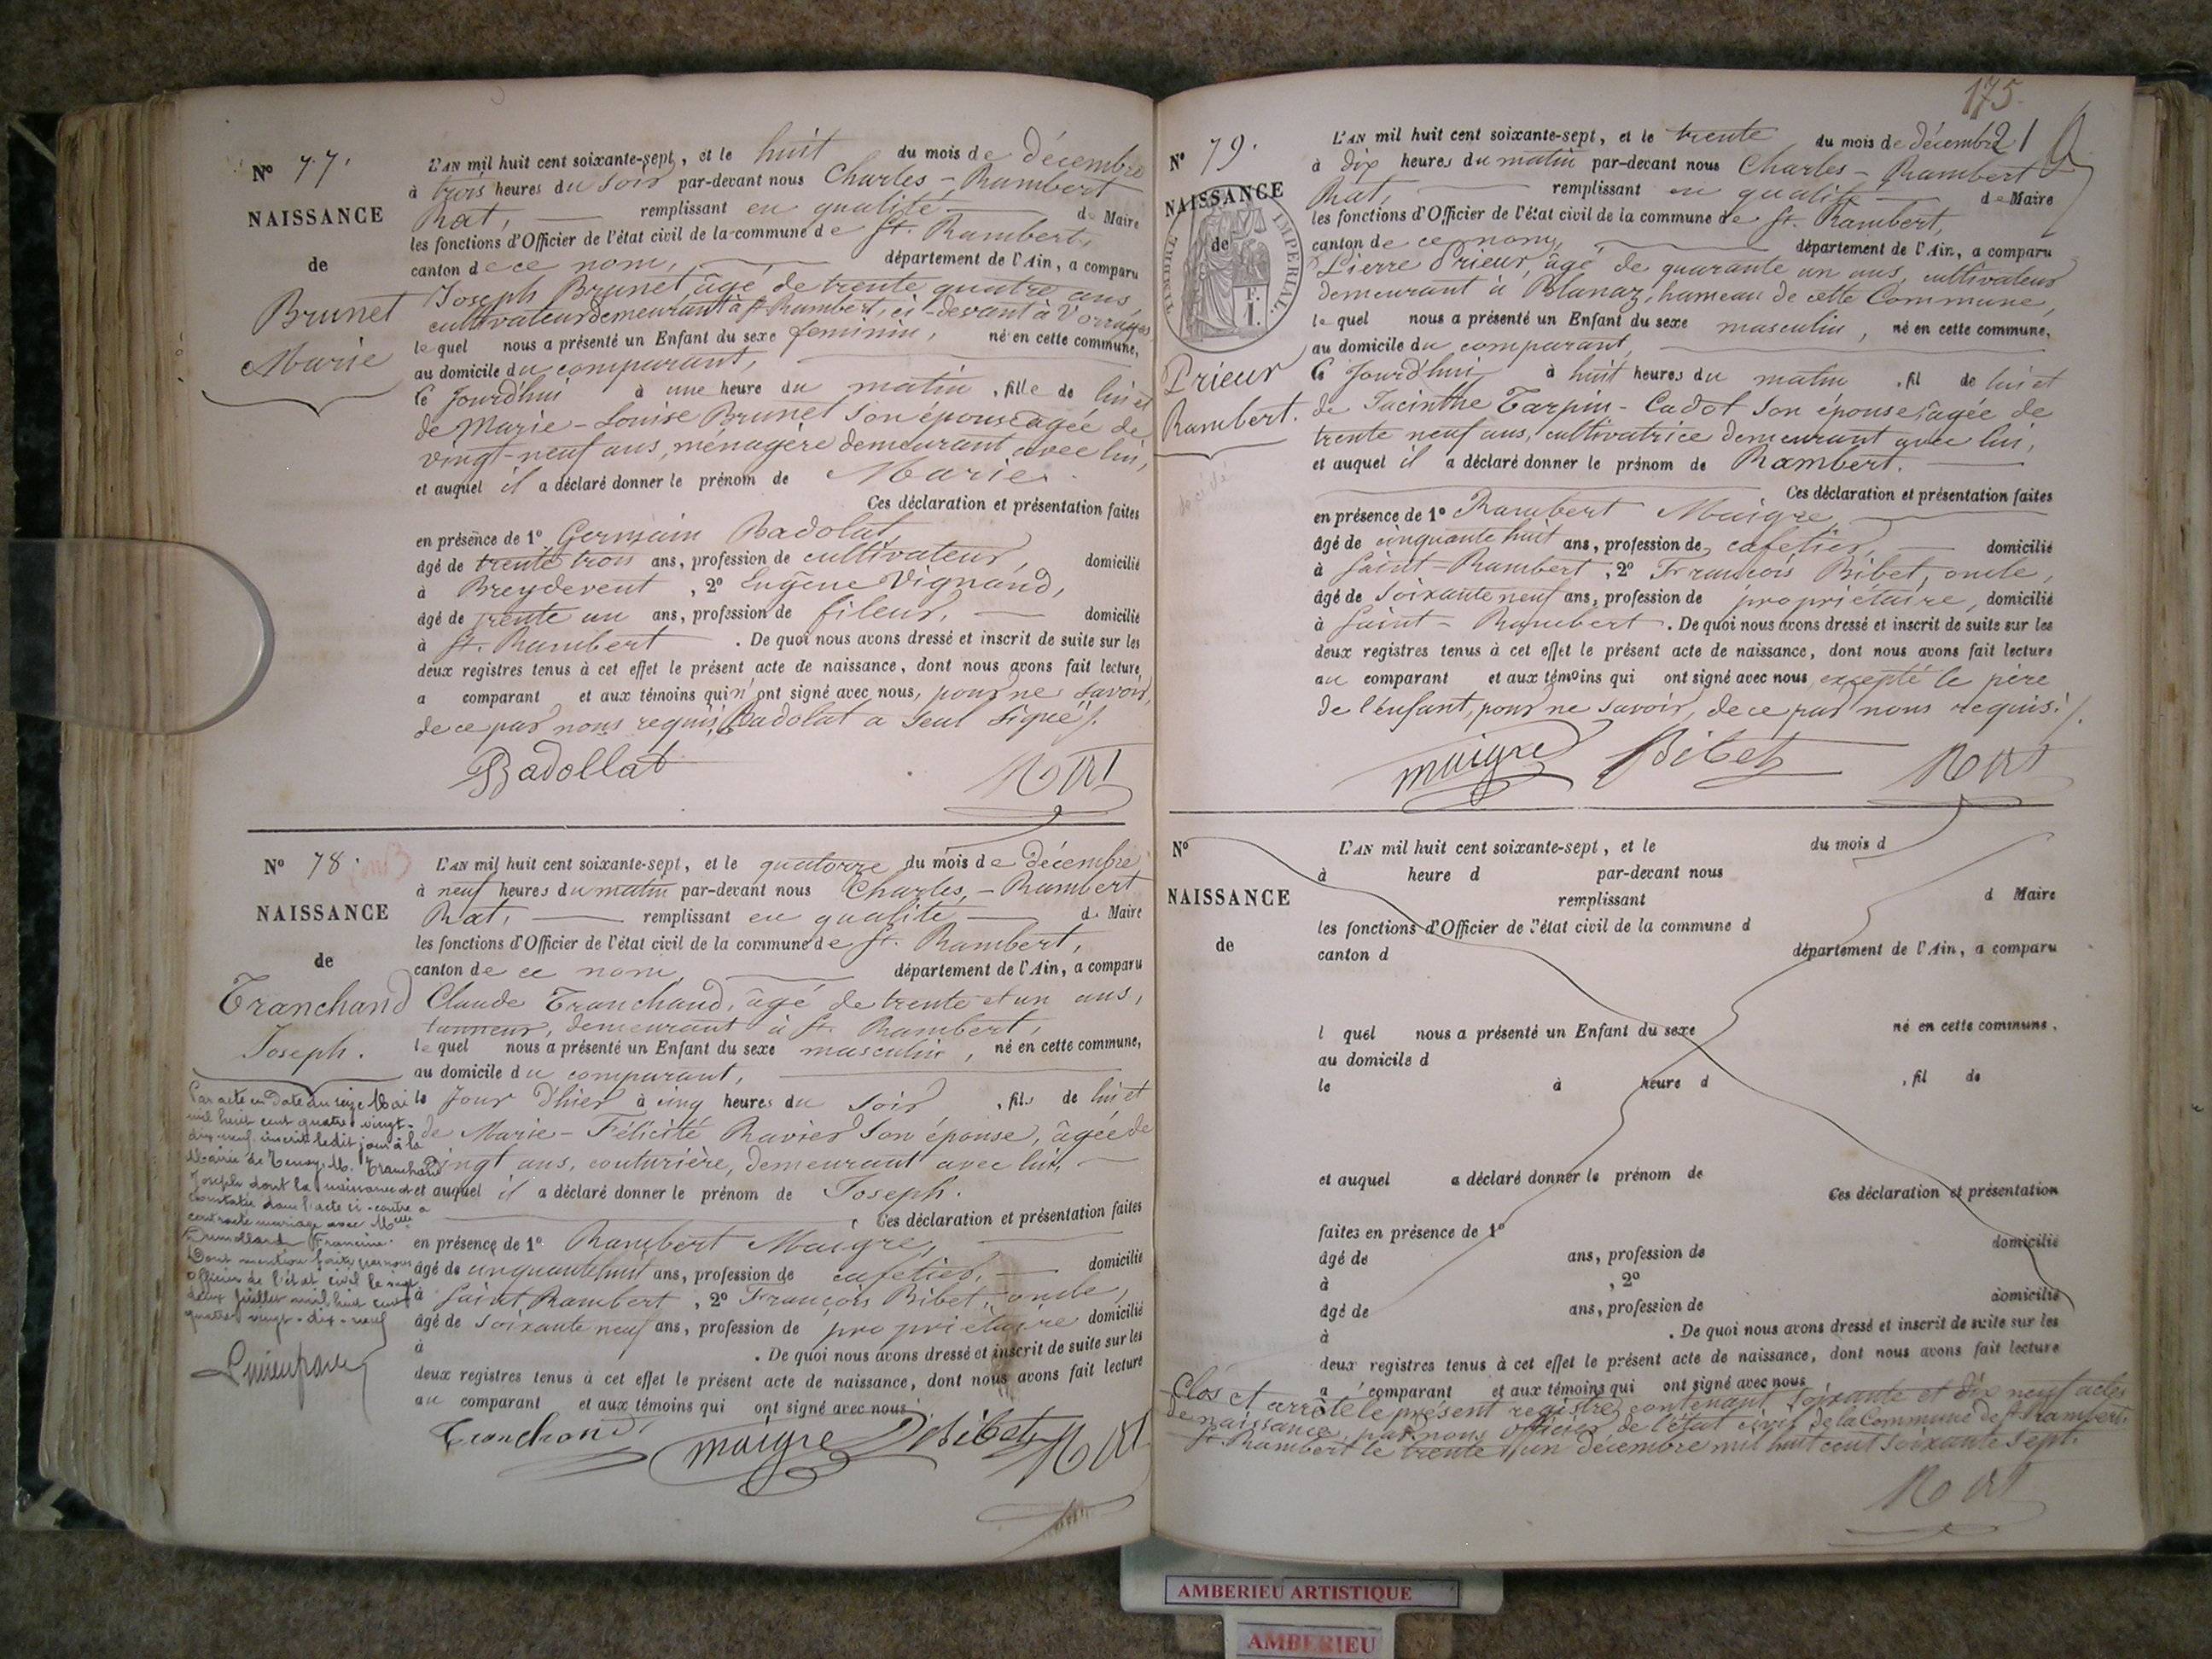 N° 77.
NAISSANCE
de
Brunet
Marie
L'AN mil huit cent soixante-sept, et le huit du mois de décembre
à trois heures du soir par-devant nous Charles-Rambert
Rat, remplissant en qualité de Maire
les fonctions d'Officier de l'état civil de la commune de St. Rambert,
canton de ce nom, département de l'Ain, a comparu
Joseph Brunet, âgé de trente quatre ans,
cultivateur demeurant à St Rambert, ci-devant à
lequel nous a présenté un Enfant du sexe feminin, né en cette commune,
au domicile du comparant,
le Jourd'hui à une heure du matin, fille de lui et
de Marie-Louise Brunet son épouse âgée de
vingt-neuf ans, ménagère demeurant avec lui,
et auquel il a déclaré donner le prénom de Marie.
Ces déclaration et présentation faites
en présence de 1° Germain Badolat,
âgé de trente trois ans, profession de cultivateur, domicilié
à Breydevent, 2° Eugène Vignand,
âgé de trente un ans, profession de fileur, domicilié
à St. Rambert. De quoi nous avons dressé et inscrit de suite sur les
deux registres tenus à cet effet le présent acte de naissance, dont nous avons fait lecture,
a comparant et aux témoins qui n'ont signé avec nous, pour ne savoir,
de ce par nous requis, Badolat a seul signé.
Badollat Rat
N° 78.
NAISSANCE
de
Tranchand
Joseph.
L'AN mil huit cent soixante-sept, et le quatorze du mois de décembre
à neuf heures du matin par-devant nous Charles,-Rambert
Rat, remplissant en qualité de Maire
les fonctions d'Officier de l'état civil de la commune de St. Rambert,
canton de ce nom, département de l'Ain, a comparu
Claude Tranchand, âgé de trente et un ans,
tanneur, demeurant à St. Rambert,
lequel nous a présenté un Enfant du sexe masculin, né en cette commune,
au domicile du comparant,
le Jour d'hier à cinq heures du soir, fils de lui et
de Marie-Félicité Ravier son épouse, âgée de
vingt ans, couturière, demeurant avec lui,
et auquel il a déclaré donner le prénom de Joseph.
Ces déclaration et présentation faites
en présence de 1° Rambert Maigre,
âgé de cinquante huit ans, profession de cafetier, domicilié
à Saint Rambert, 2° François Bibet, oncle,
âgé de soixante neuf ans, profession de propriétaire domicilié
à . De quoi nous avons dressé et inscrit de suite sur les
deux registres tenus à cet effet le présent acte de naissance, dont nous avons fait lecture
au comparant et aux témoins qui ont signé avec nous
Tranchand maigre Bibet Rat
Par acte en date du seize Mai
mil huit cent quatre vingt-
dix-neuf inscrit ledit jour à la
Mairie de Tenay, M. Tranchand
Joseph dont la naissance est
constatée dans l'acte ci-contre a
contracté mariage avec Melle
Francine.
Dont mention faite par nous
officier de l'état civil le vingt
deux Juillet mil huit cent
quatre vingt-dix-neuf
175.
21
N° 79.
NAISSANCE
de
TIMBRE IMPERIAL.
Prieur
Rambert.
L'AN mil huit cent soixante-sept, et le trente du mois de décembre
à dix heures du matin par-devant nous Charles-Rambert
Rat, remplissant en qualité de Maire
les fonctions d'Officier de l'état civil de la commune de St. Rambert,
canton de ce nom, département de l'Ain, a comparu
Pierre Prieur, âgé de quarante un ans, cultivateur
demeurant à Blanaz, hameau de cette Commune,
lequel nous a présenté un Enfant du sexe masculin, né en cette commune,
au domicile du comparant,
le Jourd'hui à huit heures du matin, fil de lui et
de Jacinthe Tarpin-Cadot son épouse, âgée de
trente neuf ans, cultivatrice demeurant avec lui,
et auquel il a déclaré donner le prénom de Rambert.
Ces déclaration et présentation faites
en présence de 1° Rambert Maigre,
âgé de cinquante huit ans, profession de cafetier, domicilié
à Saint-Rambert, 2° François Bibet, oncle,
âgé de soixante neuf ans, profession de propriétaire, domicilié
à Saint-Rambert. De quoi nous avons dressé et inscrit de suite sur les
deux registres tenus à cet effet le présent acte de naissance, dont nous avons fait lecture
au comparant et aux témoins qui ont signé avec nous, excepté le père
de l'enfant, pour ne savoir, de ce par nous requis.
maigre Bibet Rat
N°
NAISSANCE
de
L'AN mil huit cent soixante-sept, et le du mois d
à heure d par-devant nous
remplissant d Maire
les fonctions d'Officier de l'état civil de la commune d
canton d département de l'Ain, a comparu
l quel nous a présenté un Enfant du sexe né en cette commune,
au domicile d
le à heure d , fil de
et auquel a déclaré donner le prénom de
Ces déclaration et présentation
faites en présence de 1°
âgé de ans, profession de domicilié
à , 2°
âgé de ans, profession de domicilié
à . De quoi nous avons dressé et inscrit de suite sur les
deux registres tenus à cet effet le présent acte de naissance, dont nous avons fait lecture
a comparant et aux témoins qui ont signé avec nous
Clos et arrêté le présent registre contenant soixante et dix neuf actes
de naissance, par nous officier de l'état civil de la Commune de St Rambert.
St. Rambert le trente un décembre mil huit cent soixante sept.
Rat
AMBERIEU ARTISTIQUE
AMBERIEU